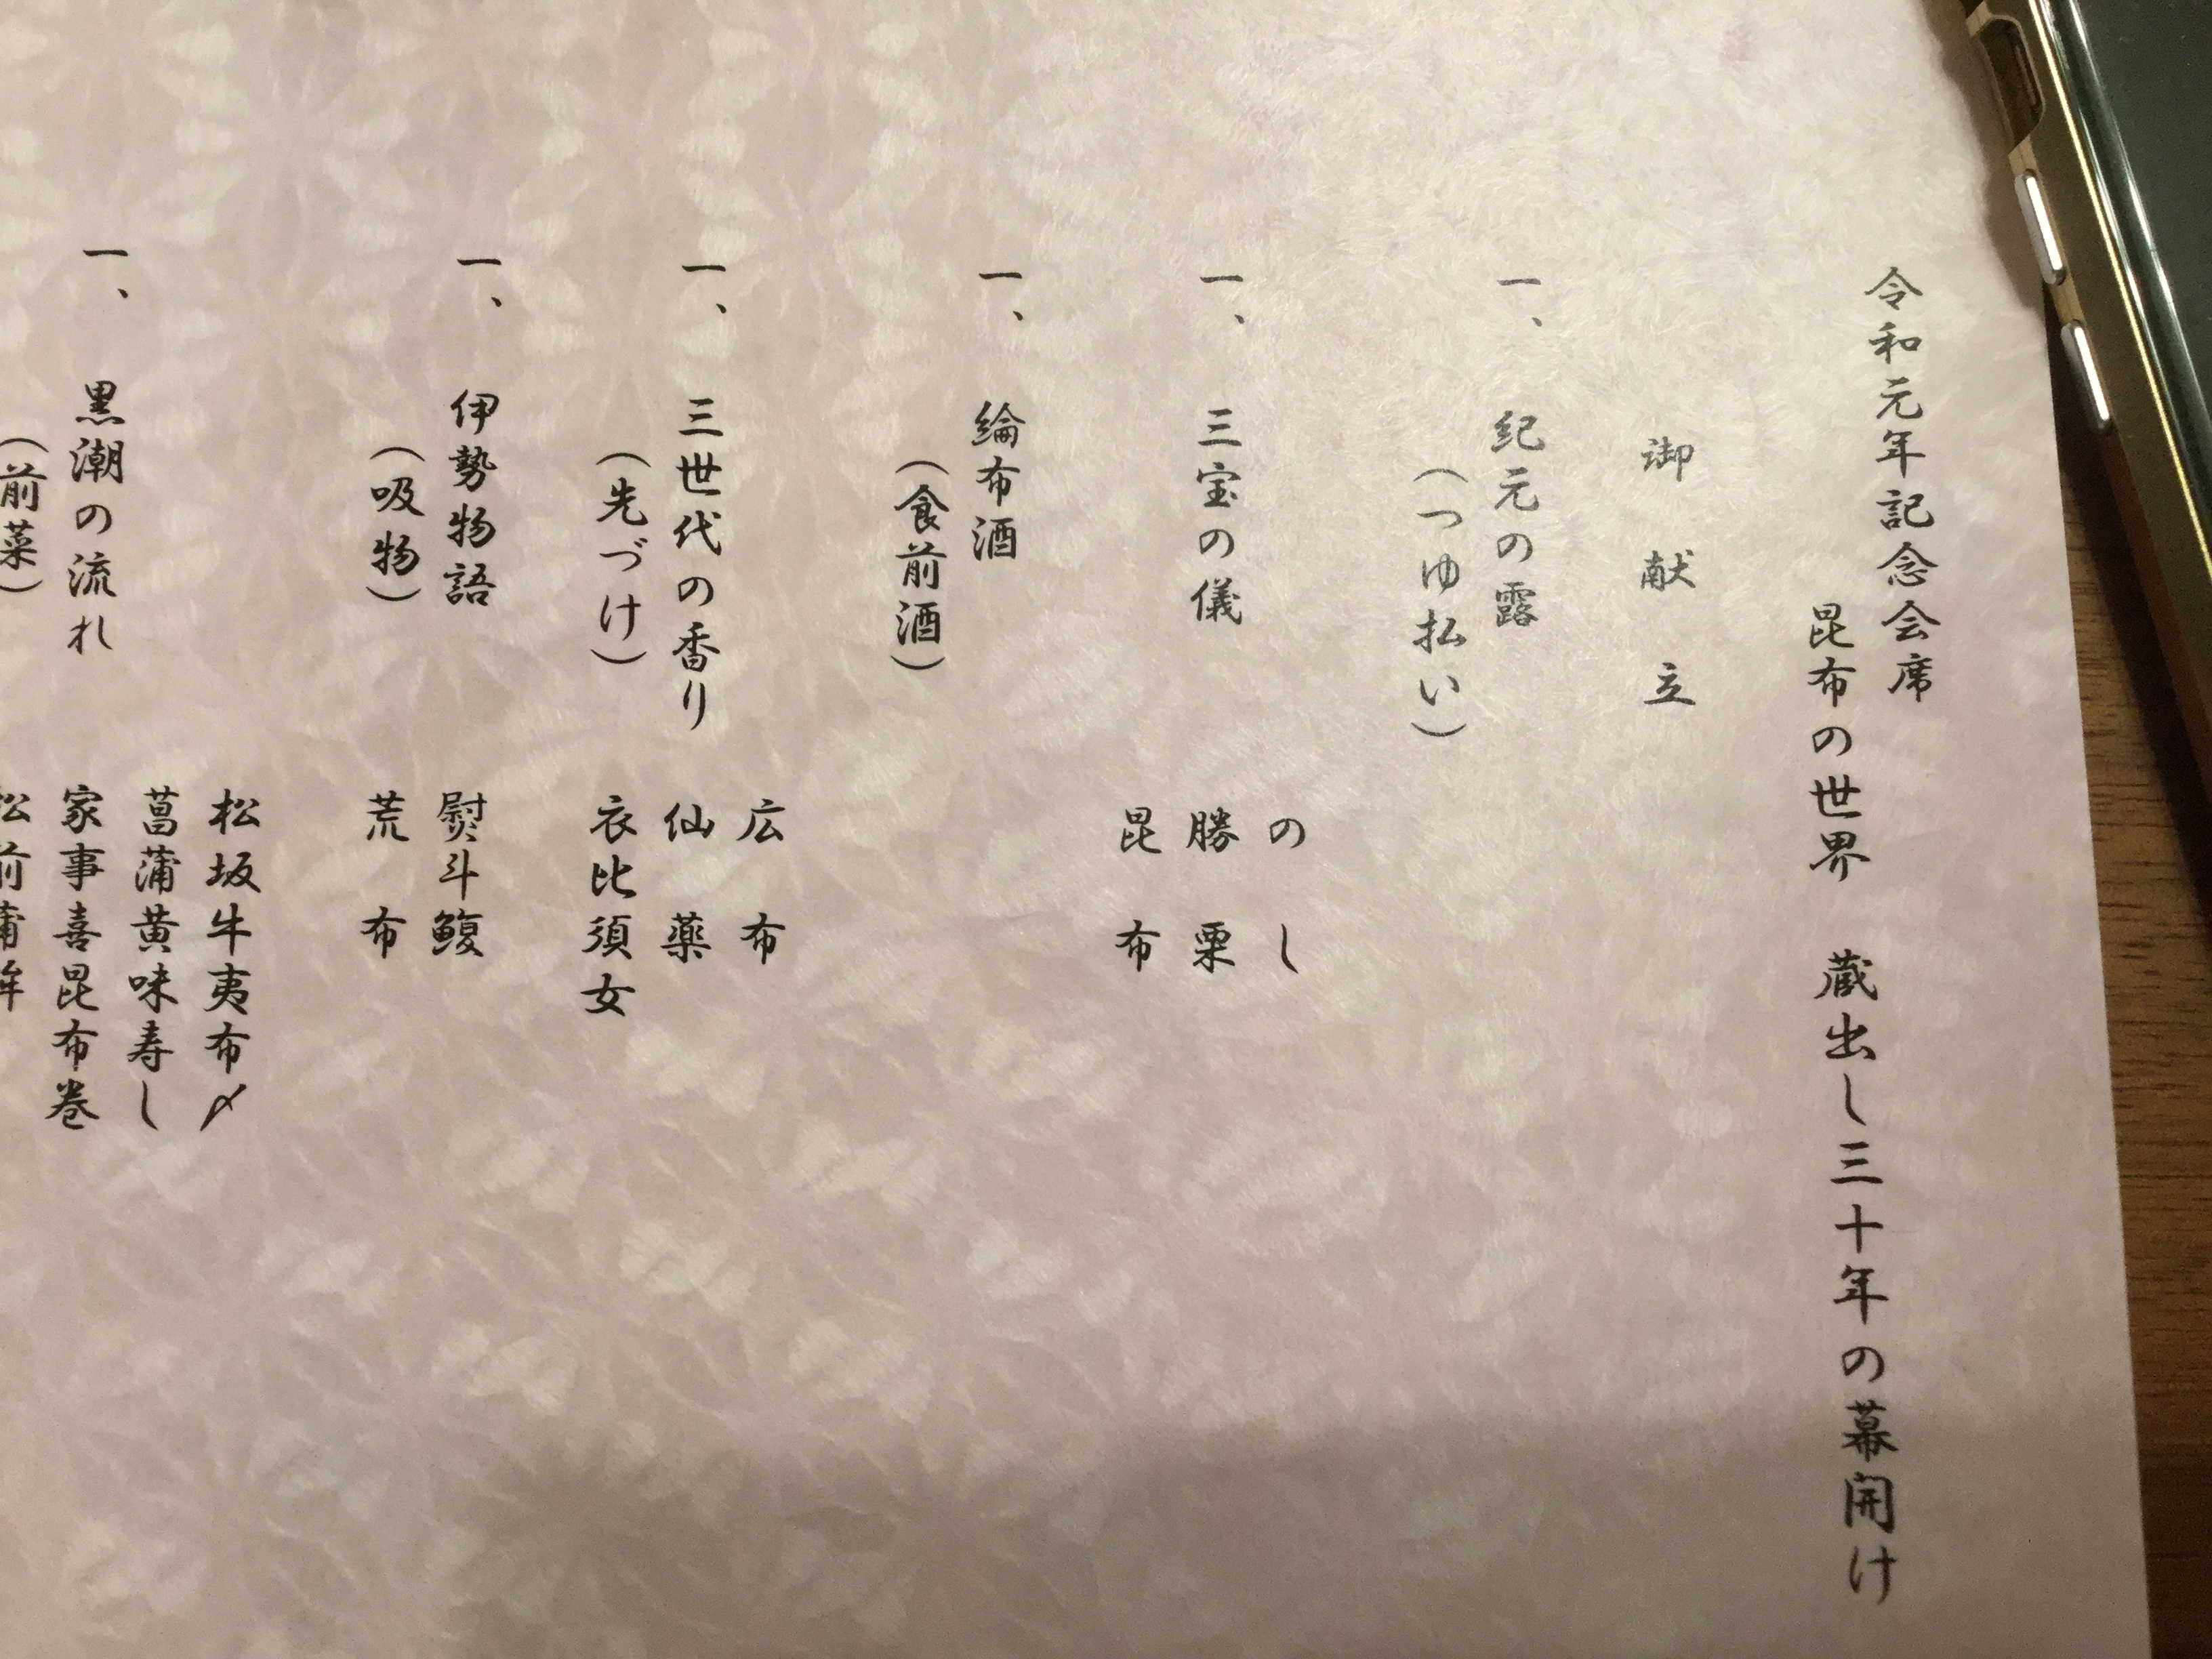 令和元年記念会席
昆布の世界　蔵出し三十年の幕開け
御献立
一、紀元の露
（つゆ払い）
のし
一、三宝の儀　勝栗
昆布
一、綸布酒
（食前酒）
広布
一、三世代の香り　仙薬
（先づけ）　衣比須女
一、伊勢物語　熨斗鰒
（吸物）　荒布
松坂牛夷布〆
菖蒲黄味寿し
一、黒潮の流れ　家事喜昆布巻
（前菜）　松前蒲鉾